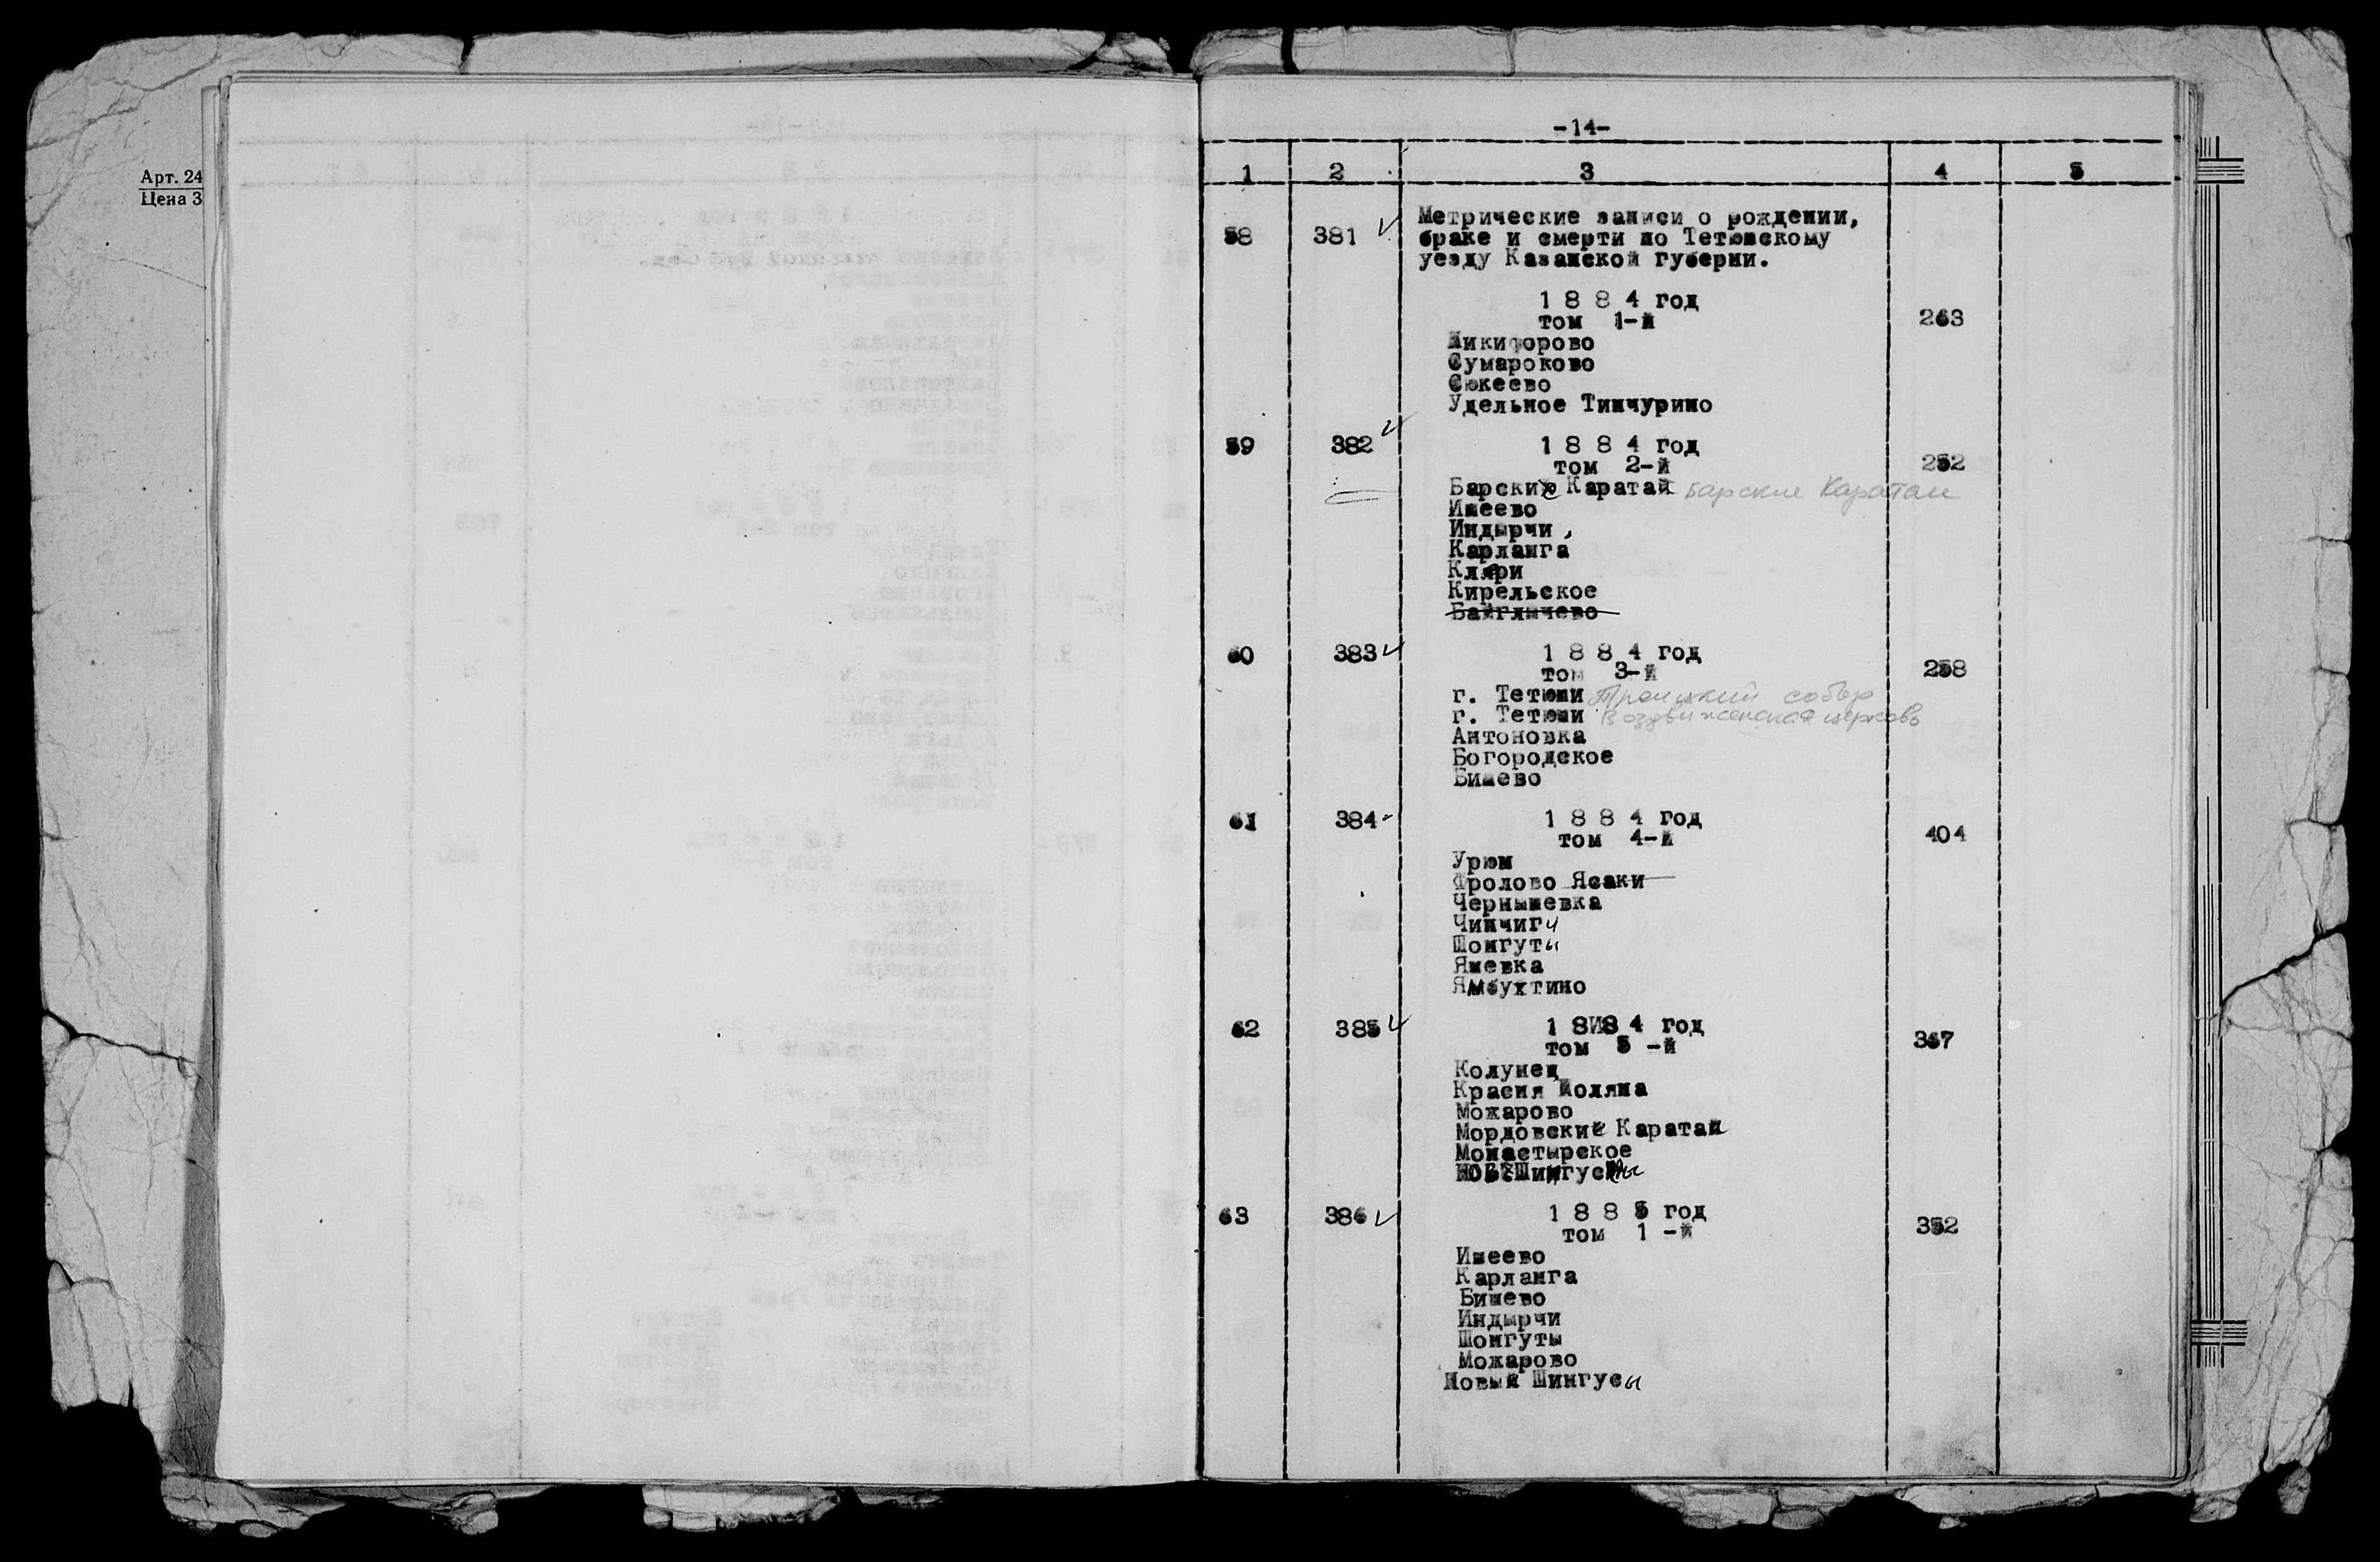 Арт. 24
Цена 3
-14-
1 2 3 4 5
58 381 Метрические записи о рождении,
браке и смерти по Тетюшскому
уезду Казанской губернии.
1 8 8 4 год
том 1-й 263
Никифорово
Сумароково
Сюкеево
Удельное Тинчурино
59 382 1 8 8 4 год
том 2-й 252
Барские Каратаи Барские Каратаи
Ишеево
Индырчи,
Карланга
Кляри
Кирельское
Байглычево
60 383 1 8 8 4 год
том 3-й 258
г. Тетюши Троицкий собор
г. Тетюши Воздвиженская церковь
Антоновка
Богородское
Бишево
61 384 1 8 8 4 год
том 4-й 404
Урюм
Фролово Ясаки
Чернышевка
Чинчиги
Шонгуты
Яшевка
Ямбухтино
62 385 1 8 8 4 год
том 5 -й 367
Колунец
Красня Поляна
Можарово
Мордовские Каратаи
Монастырское
63 386 1 8 8 5 год
том 1 -й 352
Ишеево
Карланга
Бишево
Индырчи
Шонгуты
Можарово
Новый Шингусы